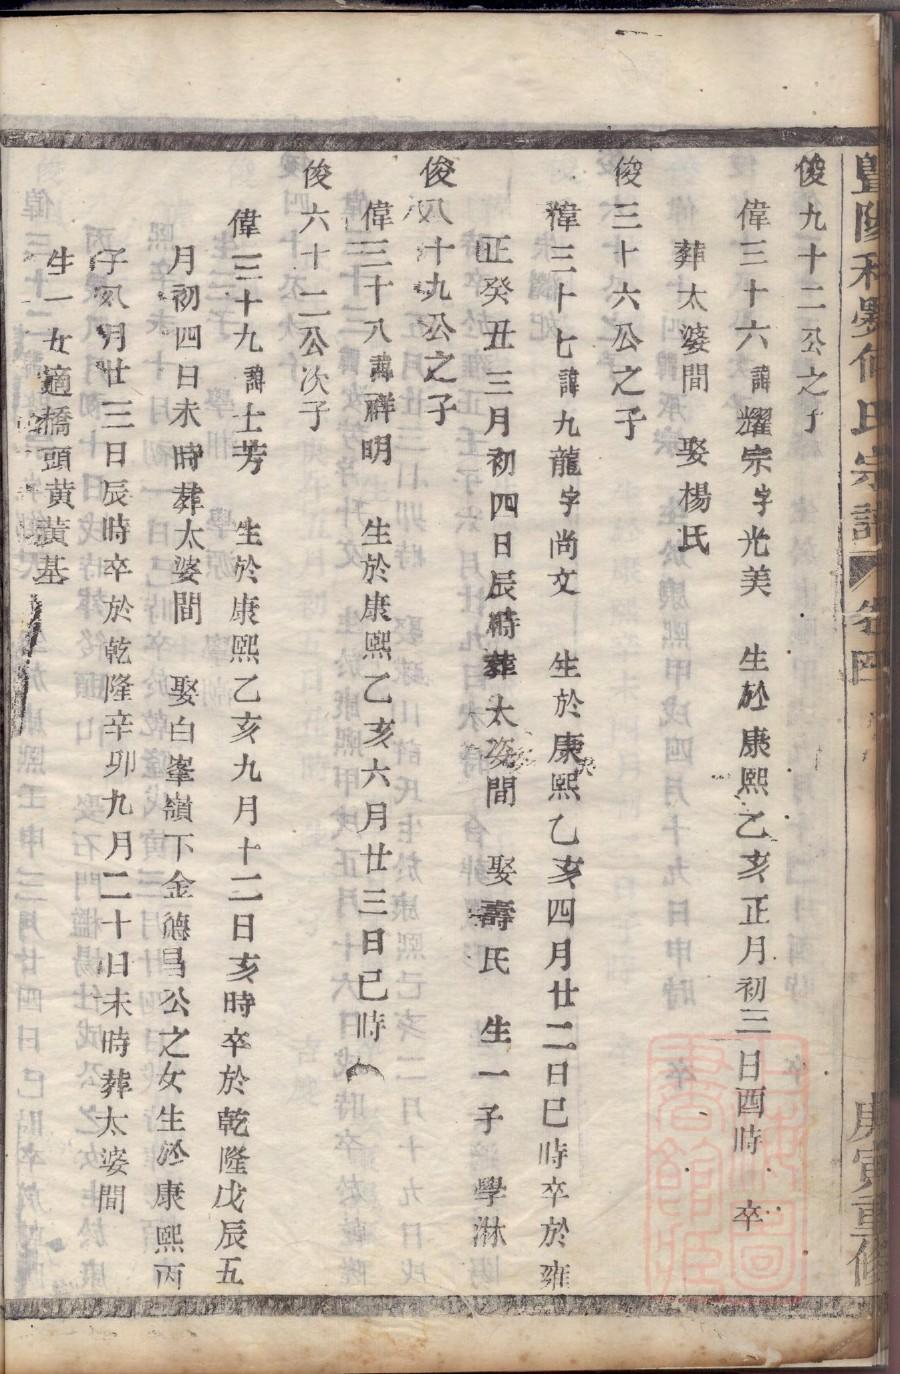 暨陽 何氏宗譜 卷四 庚寅重修
俊九十二公之子
偉三十六諱耀宗字光美 生於康熙乙亥正月初三日酉時 卒
葬太婆間 娶楊氏
俊三十六公之子
偉三十七諱九龍字尚文 生於康熙乙亥四月廿二日巳時卒於雍
正癸丑三月初四日辰時葬太婆間 娶壽氏 生一子 學淋
俊八十九公之子
偉三十八諱祥明 生於康熙乙亥六月廿三日巳時
俊六十二公次子
偉三十九諱士芳 生於康熙乙亥九月十二日亥時卒於乾隆戊辰五
月初四日未時葬太婆間 娶白峯嶺下金德昌公之女生於康熙丙
子八月廿三日辰時卒於乾隆辛卯九月二十日未時葬太婆間
生一女適橋頭黄黃基